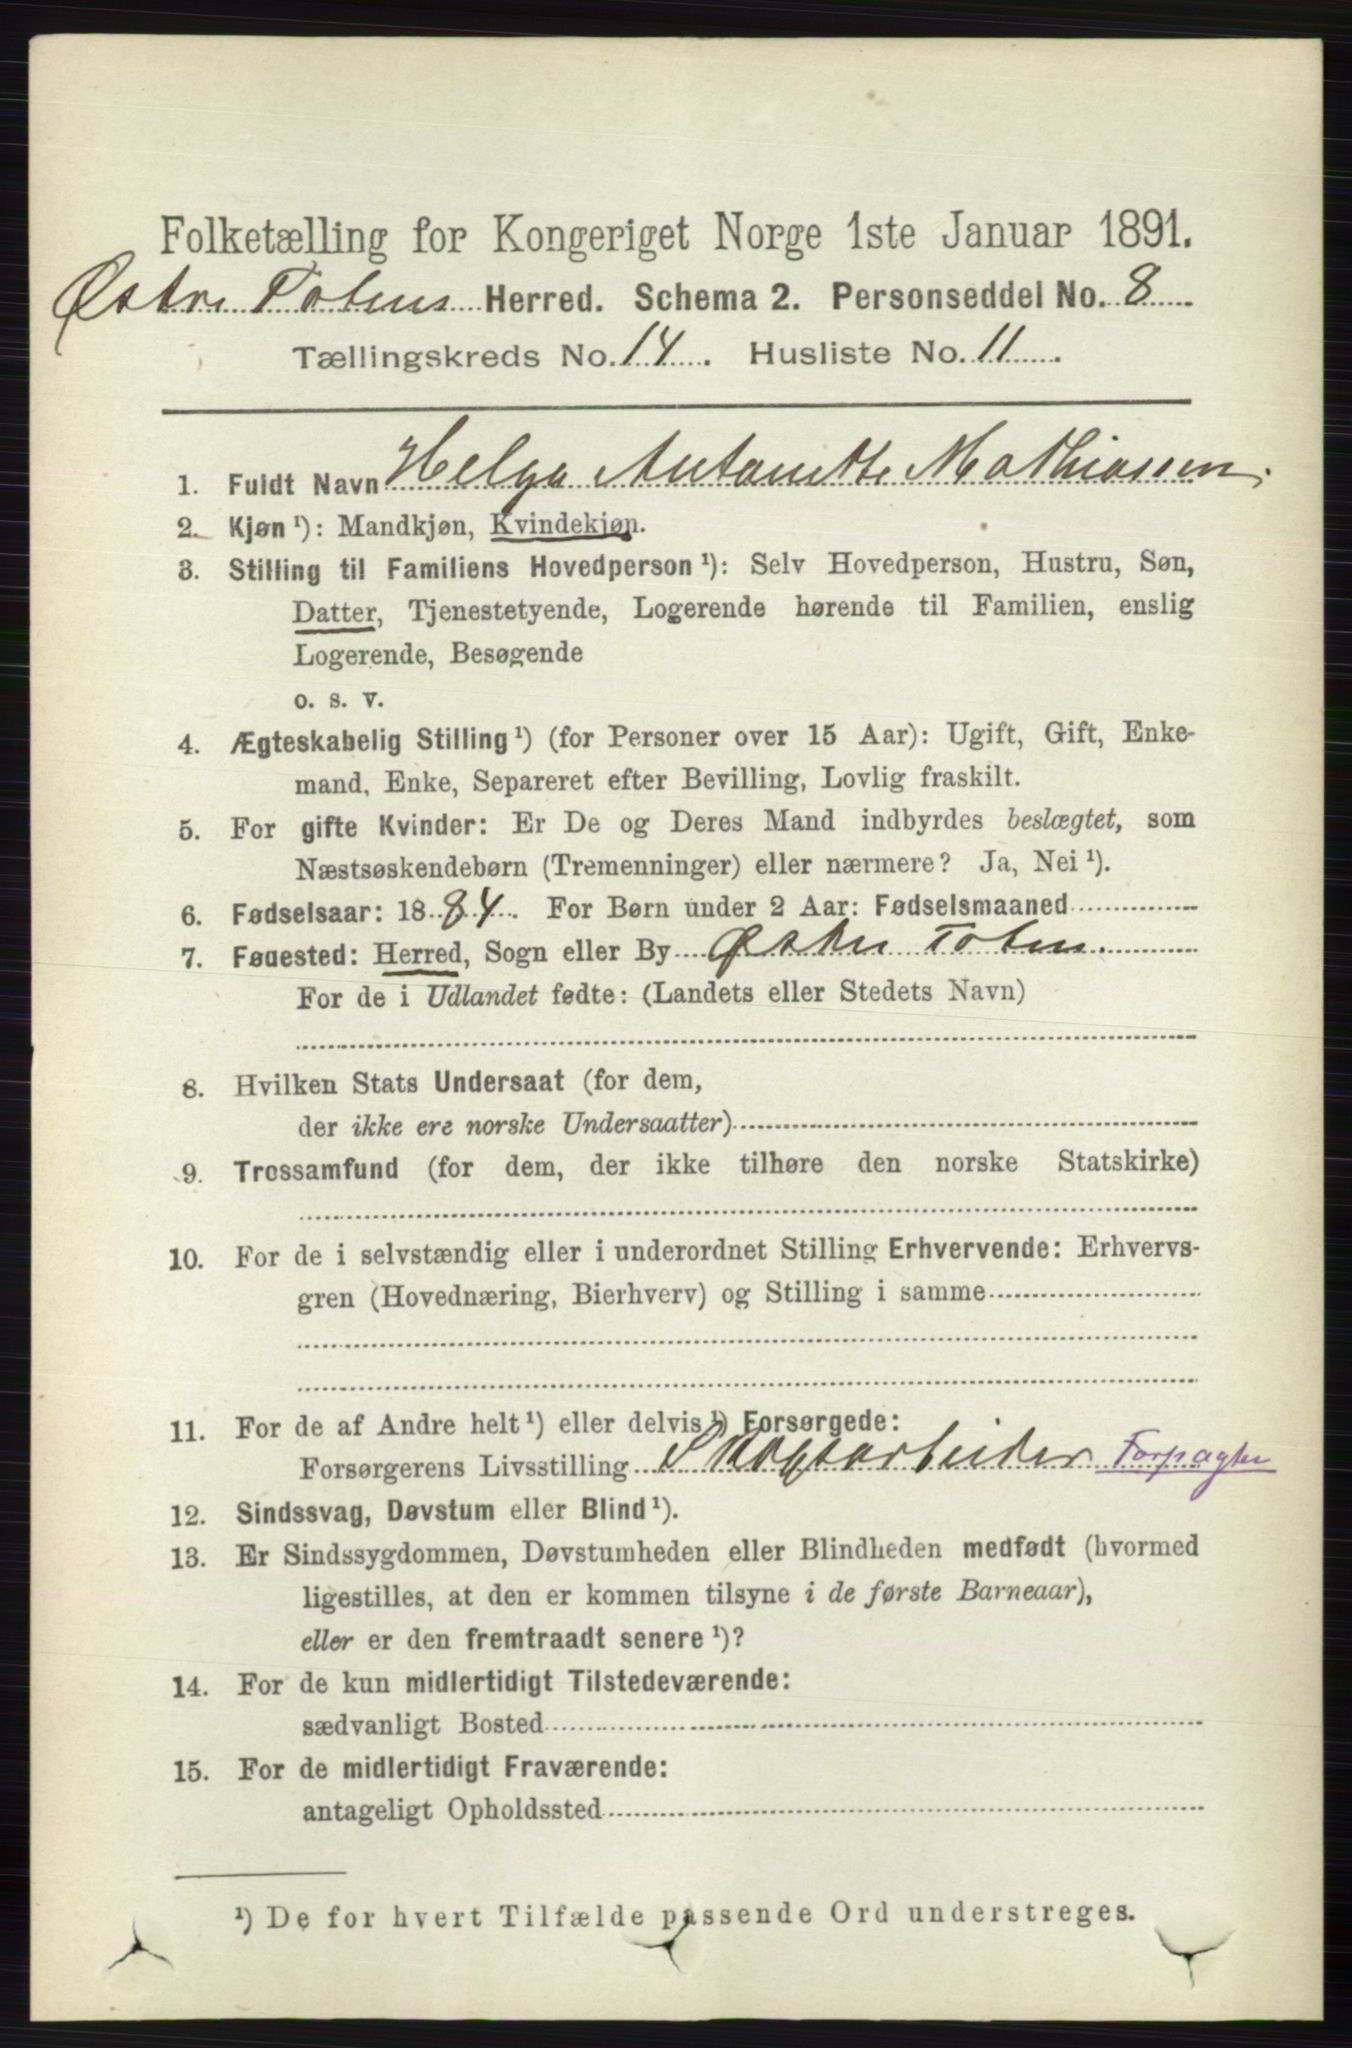 Folketælling for Kongeriget Norge 1ste Januar 1891.
Østre Totens Herred. Schema 2. Personseddel No. 8
Tællingskreds No. 14. Husliste No. 11.
1. Fuldt Navn Helga Antonette Mathiasen.
2. Kjøn ¹): Mandkjøn, Kvindekjøn.
3. Stilling til Familiens Hovedperson ¹): Selv Hovedperson, Hustru, Søn,
Datter, Tjenestetyende, Logerende hørende til Familien, enslig
Logerende, Besøgende
o. s. v.
4. Ægteskabelig Stilling ¹) (for Personer over 15 Aar): Ugift, Gift, Enke-
mand, Enke, Separeret efter Bevilling, Lovlig fraskilt.
5. For gifte Kvinder: Er De og Deres Mand indbyrdes beslægtet, som
Næstsøskendebørn (Tremenninger) eller nærmere? Ja, Nei ¹).
6. Fødselsaar: 1884. For Børn under 2 Aar: Fødselsmaaned
7. Fødested: Herred, Sogn eller By Østre Toten.
For de i Udlandet fødte: (Landets eller Stedets Navn)
8. Hvilken Stats Undersaat (for dem,
der ikke ere norske Undersaatter)
9. Trossamfund (for dem, der ikke tilhøre den norske Statskirke)
10. For de i selvstændig eller i underordnet Stilling Erhvervende: Erhvervs-
gren (Hovednæring, Bierhverv) og Stilling i samme
11. For de af Andre helt ¹) eller delvis ¹) Forsørgede:
Forsørgerens Livsstilling Skogsarbeider Forpagter
12. Sindssvag, Døvstum eller Blind ¹).
13. Er Sindssygdommen, Døvstumheden eller Blindheden medfødt (hvormed
ligestilles, at den er kommen tilsyne i de første Barneaar),
eller er den fremtraadt senere ¹)?
14. For de kun midlertidigt Tilstedeværende:
sædvanligt Bosted
15. For de midlertidigt Fraværende:
antageligt Opholdssted
¹) De for hvert Tilfælde passende Ord understreges.